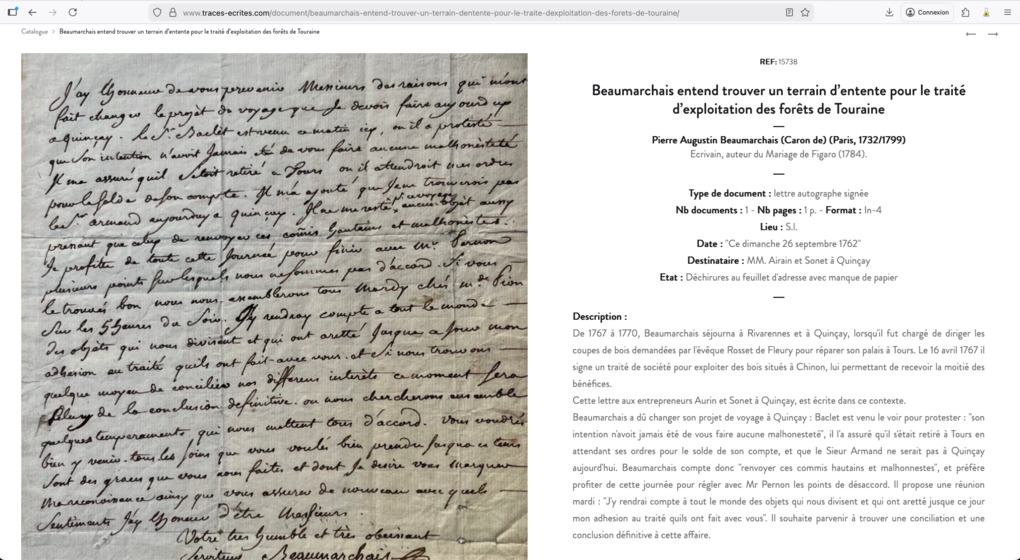 www.traces-ecrites.com/document/beaumarchais-entend-trouver-un-terrain-dentente-pour-le-traite-dexploitation-des-forets-de-touraine/
Connexion
Catalogue > Beaumarchais entend trouver un terrain d'entente pour le traité d'exploitation des forêts de Touraine
J'ay Lhonneur de vous prevenir Messieurs des raisons qui m'ont
fait changer le projet du voyage que Je devois faire aujourd'up
a quinçay. le Sr. Baclet est venu ce matin icy, ou il a protesté
que son intention n'avoit Jamais eté de vous faire aucune malhonesteté
Il ma assuré quil s'etoit retiré a Tours ou il attendroit mes ordres
pour le solde de son compte. Il m'a ajouté que Je ne trouverois pas
le Sr. armand aujourduy a quinçay. Il ne me reste aucun objet aussy
pressant que celuy de renvoyer ces comis hautains et malhonestes.
Je profite de toute cette Journée pour finir avec Mr. Pernon
plusieurs points sur lesquels nous ne sommes pas d'accord. Si vous
le trouvés bon nous nous assemblerons tous Mardy chés Mr. Pion
sur les 5 heures du Soir. J'y rendray compte a tout le monde
des objets qui nous divisent et qui ont aretté Jusqua ce Jour mon
adhesion au traité quils ont fait avec vous. et Si nous trouvons
quelque moyen de concilier nos differens interets ce moment Sera
celuy de la conclusion definitive. ou nous chercherons ensemble
quelques temperaments qui nous mettent tous d'accord. vous voudrés
bien y venir. tous les soins que vous voulés bien prendre Jusqua ce tems
Sont des graces que vous nous faites et dont Je desire vous marquer
Ma reconoissance ainsy que vous assurer de nouveau avec quels
Sentiments Jay Lhoneur d'être Messieurs
Votre tres humble et tres obeissant
Serviteur Beaumarchais
REF: 15738
Beaumarchais entend trouver un terrain d'entente pour le traité
d'exploitation des forêts de Touraine
Pierre Augustin Beaumarchais (Caron de) (Paris, 1732/1799)
Ecrivain, auteur du Mariage de Figaro (1784).
Type de document : lettre autographe signée
Nb documents : 1 - Nb pages : 1 p. - Format : In-4
Lieu : S.l.
Date : "Ce dimanche 26 septembre 1762"
Destinataire : MM. Airain et Sonet à Quinçay
Etat : Déchirures au feuillet d'adresse avec manque de papier
Description :
De 1767 à 1770, Beaumarchais séjourna à Rivarennes et à Quinçay, lorsqu'il fut chargé de diriger les
coupes de bois demandées par l'évêque Rosset de Fleury pour réparer son palais à Tours. Le 16 avril 1767 il
signe un traité de société pour exploiter des bois situés à Chinon, lui permettant de recevoir la moitié des
bénéfices.
Cette lettre aux entrepreneurs Aurin et Sonet à Quinçay, est écrite dans ce contexte.
Beaumarchais a dû changer son projet de voyage à Quinçay : Baclet est venu le voir pour protester : "son
intention n'avoit jamais été de vous faire aucune malhonesteté", il l'a assuré qu'il s'était retiré à Tours en
attendant ses ordres pour le solde de son compte, et que le Sieur Armand ne serait pas à Quinçay
aujourd'hui. Beaumarchais compte donc "renvoyer ces commis hautains et malhonnestes", et préfère
profiter de cette journée pour régler avec Mr Pernon les points de désaccord. Il propose une réunion
mardi : "J'y rendrai compte à tout le monde des objets qui nous divisent et qui ont aretté jusque ce jour
mon adhésion au traité quils ont fait avec vous". Il souhaite parvenir à trouver une conciliation et une
conclusion définitive à cette affaire.